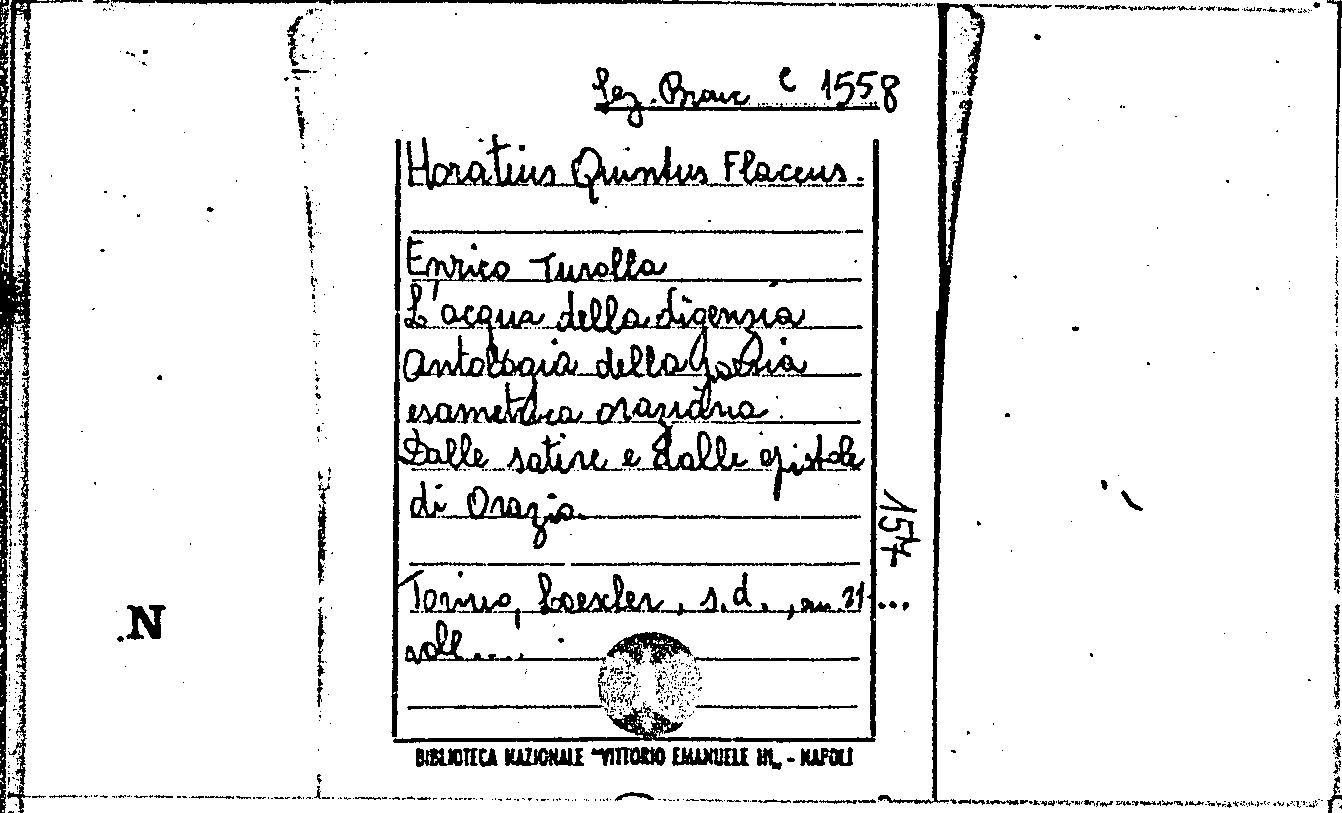 Sez. Branc C 1558
Horatius Quintus Flaccus.
Enrico Turolla
L'acqua della digenzia
Antologia della poesia
esametrica oraziana.
Dalle satire e dalle epistole
di Orazio.
157
Torino, Loescher, s.d., cm. 21...
voll....
N
BIBLIOTECA NAZIONALE "VITTORIO EMANUELE III„ - NAPOLI